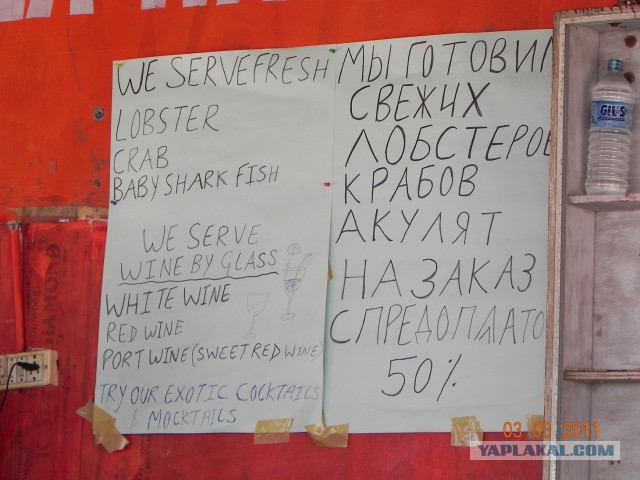 WE SERVE FRESH
LOBSTER
CRAB
BABY SHARK FISH
WE SERVE
WINE BY GLASS
WHITE WINE
RED WINE
PORT WINE (SWEET RED WINE)
TRY OUR EXOTIC COCKTAILS
& MOCKTAILS
МЫ ГОТОВИМ
СВЕЖИХ
ЛОБСТЕРОВ
КРАБОВ
АКУЛЯТ
НА ЗАКАЗ
С ПРЕДОПЛАТО
50%
GIL'S
03.03.2011
YAPLAKAL.COM